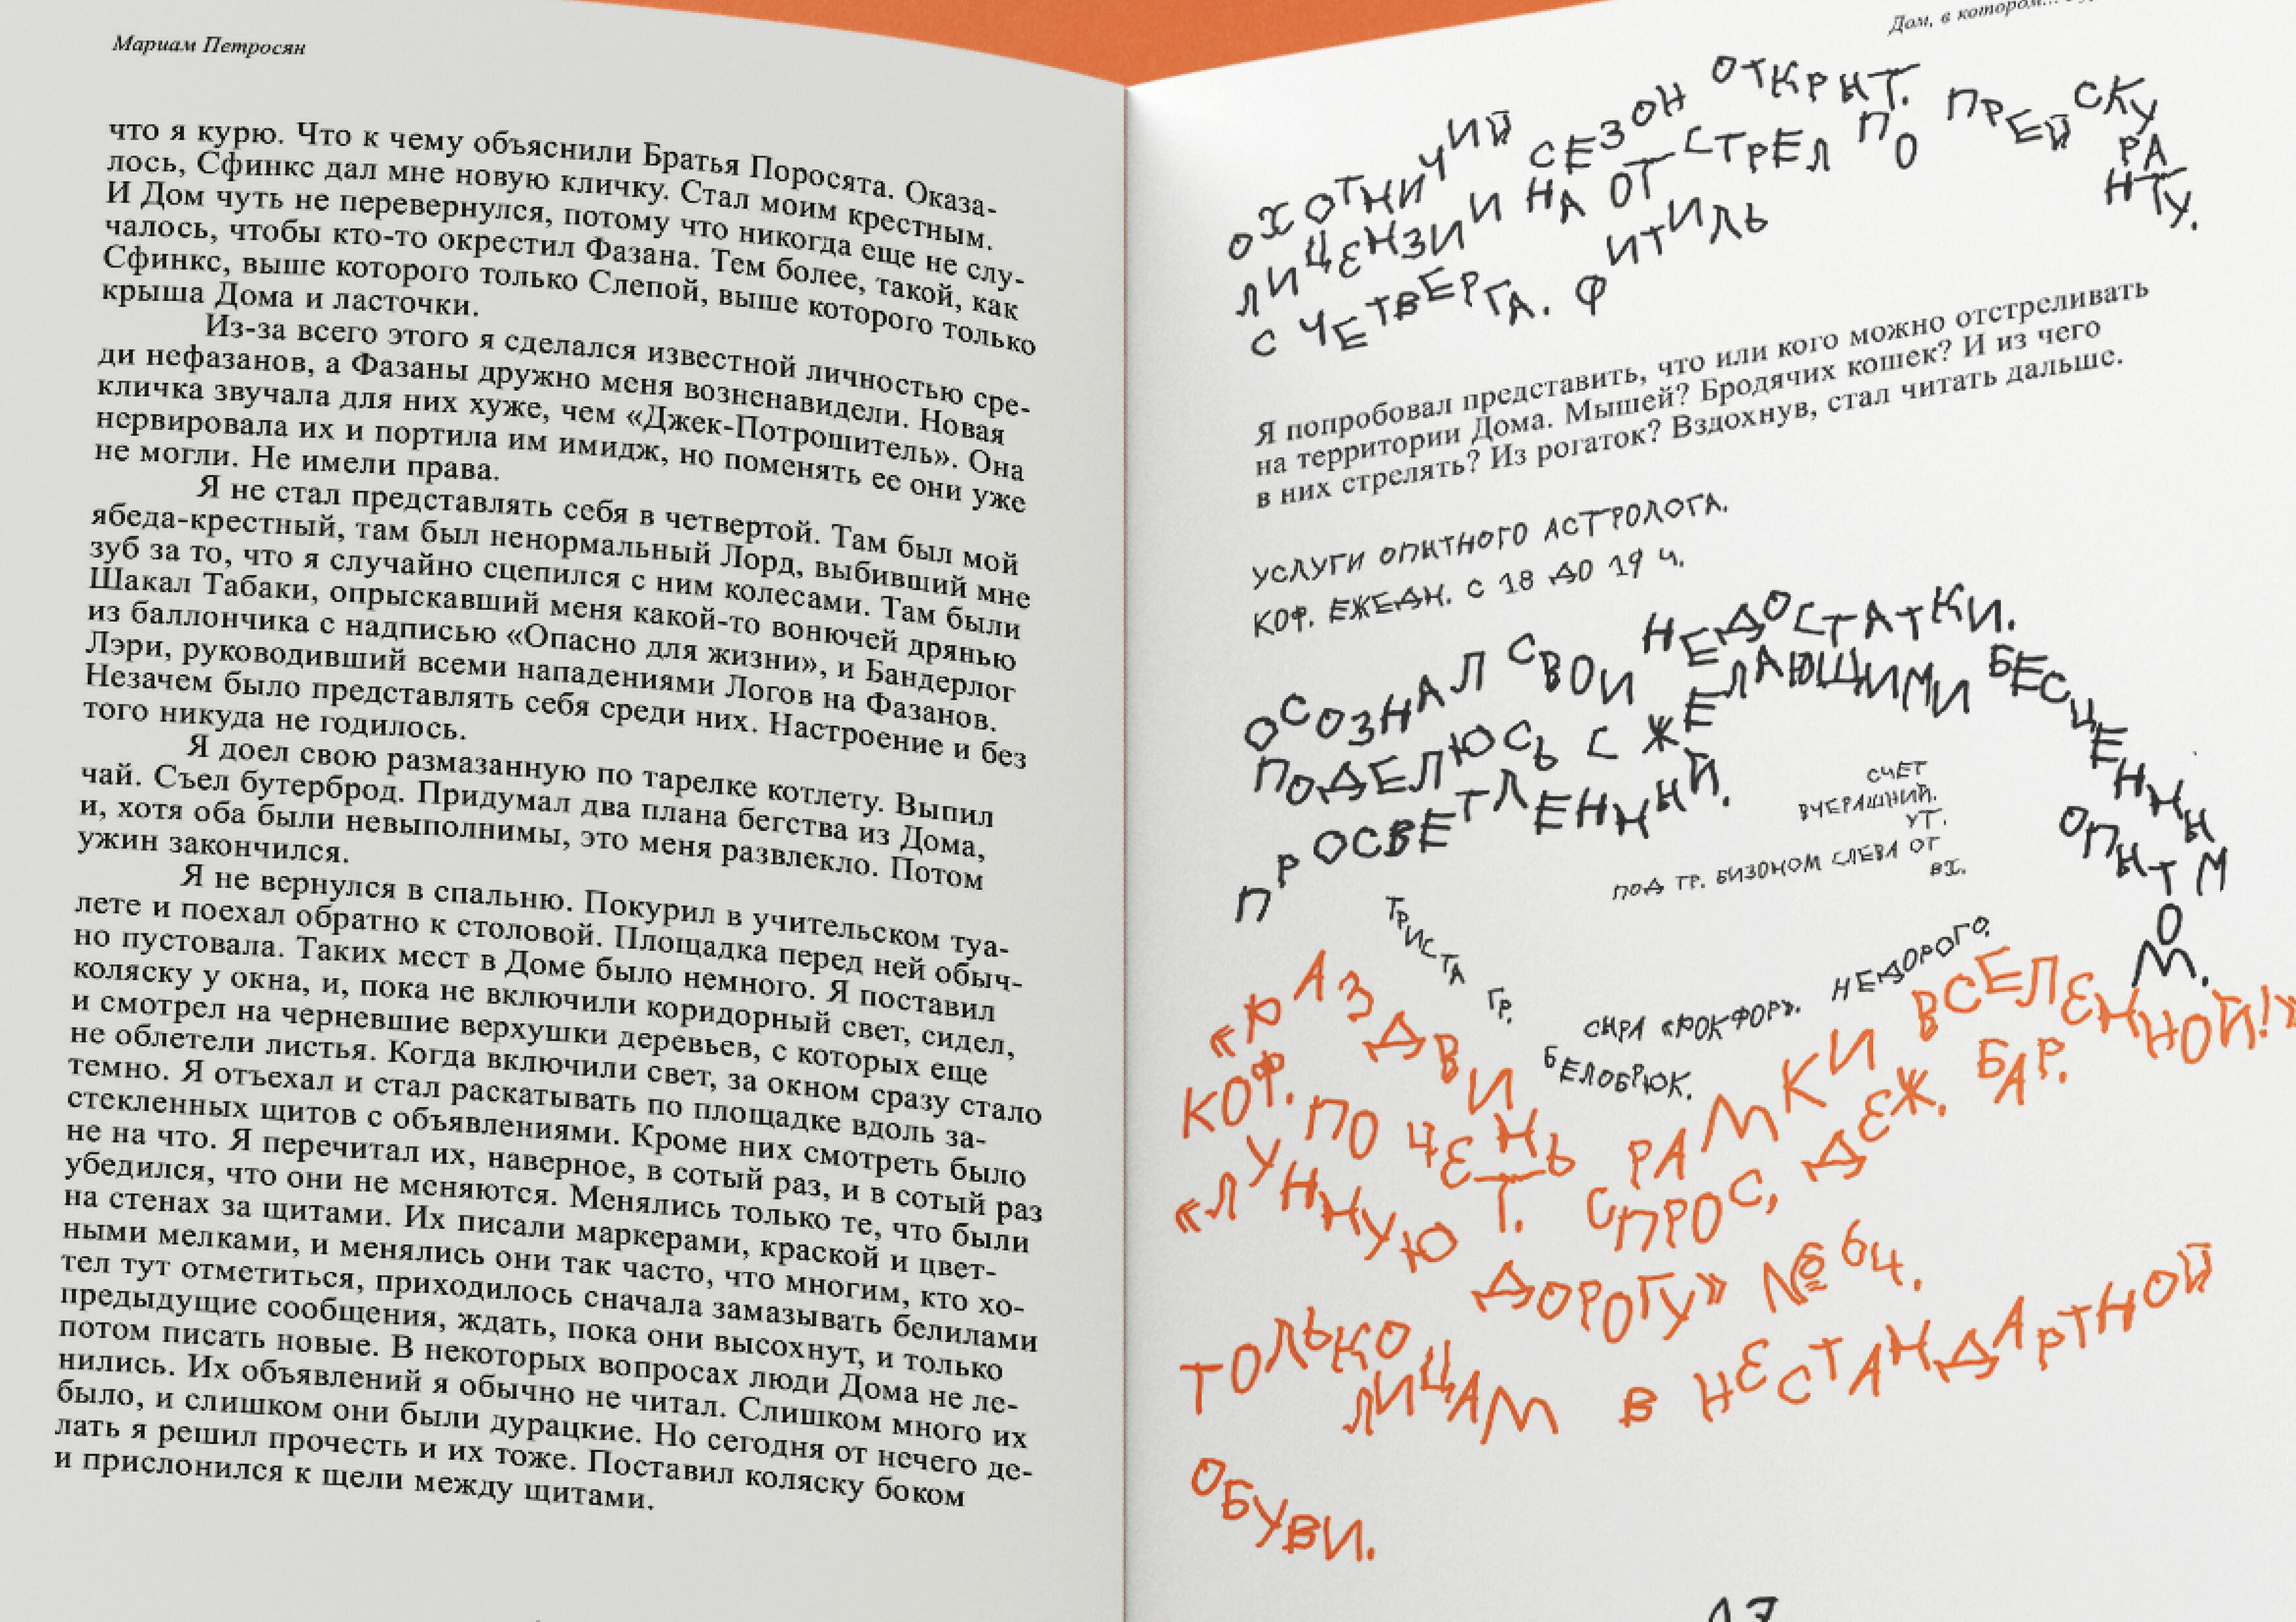 Мариам Петросян
что я курю. Что к чему объяснили Братья Поросята. Оказа-
лось, Сфинкс дал мне новую кличку. Стал моим крестным.
И Дом чуть не перевернулся, потому что никогда еще не слу-
чалось, чтобы кто-то окрестил Фазана. Тем более, такой, как
Сфинкс, выше которого только Слепой, выше которого только
крыша Дома и ласточки.
Из-за всего этого я сделался известной личностью сре-
ди нефазанов, а Фазаны дружно меня возненавидели. Новая
кличка звучала для них хуже, чем «Джек-Потрошитель». Она
нервировала их и портила им имидж, но поменять ее они уже
не могли. Не имели права.
Я не стал представлять себя в четвертой. Там был мой
ябеда-крестный, там был ненормальный Лорд, выбивший мне
зуб за то, что я случайно сцепился с ним колесами. Там были
Шакал Табаки, опрыскавший меня какой-то вонючей дрянью
из баллончика с надписью «Опасно для жизни», и Бандерлог
Лэри, руководивший всеми нападениями Логов на Фазанов.
Незачем было представлять себя среди них. Настроение и без
того никуда не годилось.
Я доел свою размазанную по тарелке котлету. Выпил
чай. Съел бутерброд. Придумал два плана бегства из Дома,
и, хотя оба были невыполнимы, это меня развлекло. Потом
ужин закончился.
Я не вернулся в спальню. Покурил в учительском туа-
лете и поехал обратно к столовой. Площадка перед ней обыч-
но пустовала. Таких мест в Доме было немного. Я поставил
коляску у окна, и, пока не включили коридорный свет, сидел,
и смотрел на черневшие верхушки деревьев, с которых еще
не облетели листья. Когда включили свет, за окном сразу стало
темно. Я отъехал и стал раскатывать по площадке вдоль за-
стекленных щитов с объявлениями. Кроме них смотреть было
не на что. Я перечитал их, наверное, в сотый раз, и в сотый раз
убедился, что они не меняются. Менялись только те, что были
на стенах за щитами. Их писали маркерами, краской и цвет-
ными мелками, и менялись они так часто, что многим, кто хо-
тел тут отметиться, приходилось сначала замазывать белилами
предыдущие сообщения, ждать, пока они высохнут, и только
потом писать новые. В некоторых вопросах люди Дома не ле-
нились. Их объявлений я обычно не читал. Слишком много их
было, и слишком они были дурацкие. Но сегодня от нечего де-
лать я решил прочесть и их тоже. Поставил коляску боком
и прислонился к щели между щитами.
Дом, в котором...
ОХОТНИЧИЙ СЕЗОН ОТКРЫТ.
ЛИЦЕНЗИИ НА ОТСТРЕЛ ПО ПРЕЙСКУ
РА
НТУ.
С ЧЕТВЕРГА. ФИТИЛЬ
Я попробовал представить, что или кого можно отстреливать
на территории Дома. Мышей? Бродячих кошек? И из чего
в них стрелять? Из рогаток? Вздохнув, стал читать дальше.
УСЛУГИ ОПЫТНОГО АСТРОЛОГА.
КОФ. ЕЖЕДН. С 18 ДО 19 Ч.
ОСОЗНАЛ СВОИ НЕДОСТАТКИ.
ПОДЕЛЮСЬ С ЖЕЛАЮЩИМИ БЕСЦЕННЫМ
ОПЫТОМ.
ПРОСВЕТЛЕННЫЙ.
СЧЕТ
ВЧЕРАШНИЙ.
УТ.
ПОД ТР. БИЗОНОМ СЛЕВА ОТ
ВХ.
ТРИСТА ГР. СЫРА «РОКФОР». НЕДОРОГО.
БЕЛОБРЮХ.
«РАЗДВИНЬ РАМКИ ВСЕЛЕННОЙ!»
КОФ. ПО ЧЕТ. СПРОС, ДЕЖ. БАР.
«ЛУННУЮ ДОРОГУ» № 64.
ТОЛЬКО ЛИЦАМ В НЕСТАНДАРТНОЙ
ОБУВИ.